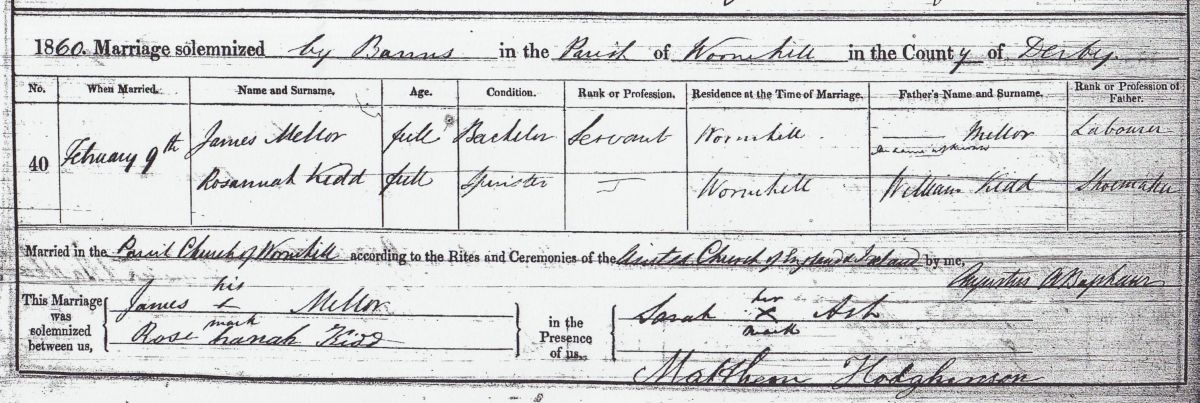 1860. Marriage solemnized by Banns in the Parish of Wormhill in the County of Derby.
No. When Married. Name and Surname. Age. Condition. Rank or Profession. Residence at the Time of Marriage. Father's Name and Surname. Rank or Profession of Father.
40 February 9th James Mellor full Bachelor Servant Wormhill. —— Mellor Labourer
Rosannah Kidd full Spinster — Wormhill William Kidd Shoemaker
Married in the Parish Church of Wormhill according to the Rites and Ceremonies of the United Church of England & Ireland by me,
Augustus
This Marriage was solemnized between us,
James his + mark Mellor
Rose hanah Kidd
in the Presence of us.
Sarah her X mark Ash
Matthew Hodgkinson